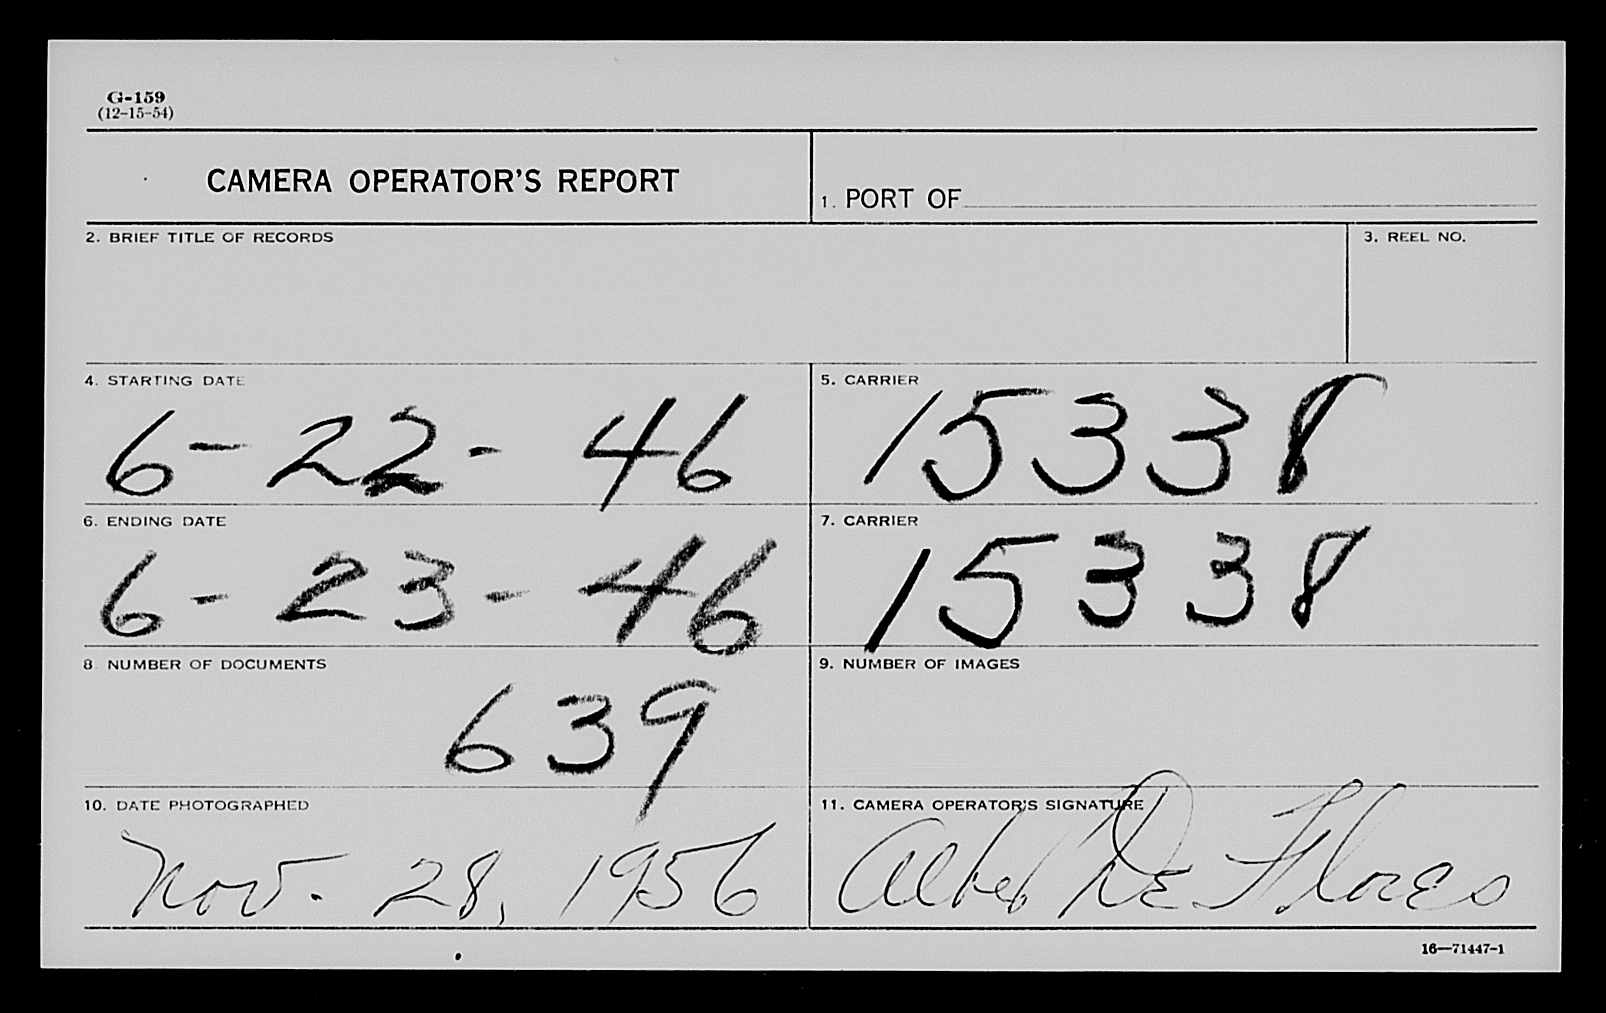 G-159
(12-15-54)
CAMERA OPERATOR'S REPORT
1. PORT OF
2. BRIEF TITLE OF RECORDS
3. REEL NO.
4. STARTING DATE
6-22-46
5. CARRIER
15338
6. ENDING DATE
6-23-46
7. CARRIER
15338
8 NUMBER OF DOCUMENTS
639
9. NUMBER OF IMAGES
10. DATE PHOTOGRAPHED
Nov. 28, 1956
11. CAMERA OPERATOR'S SIGNATURE
Albert De Flores
16—71447-1